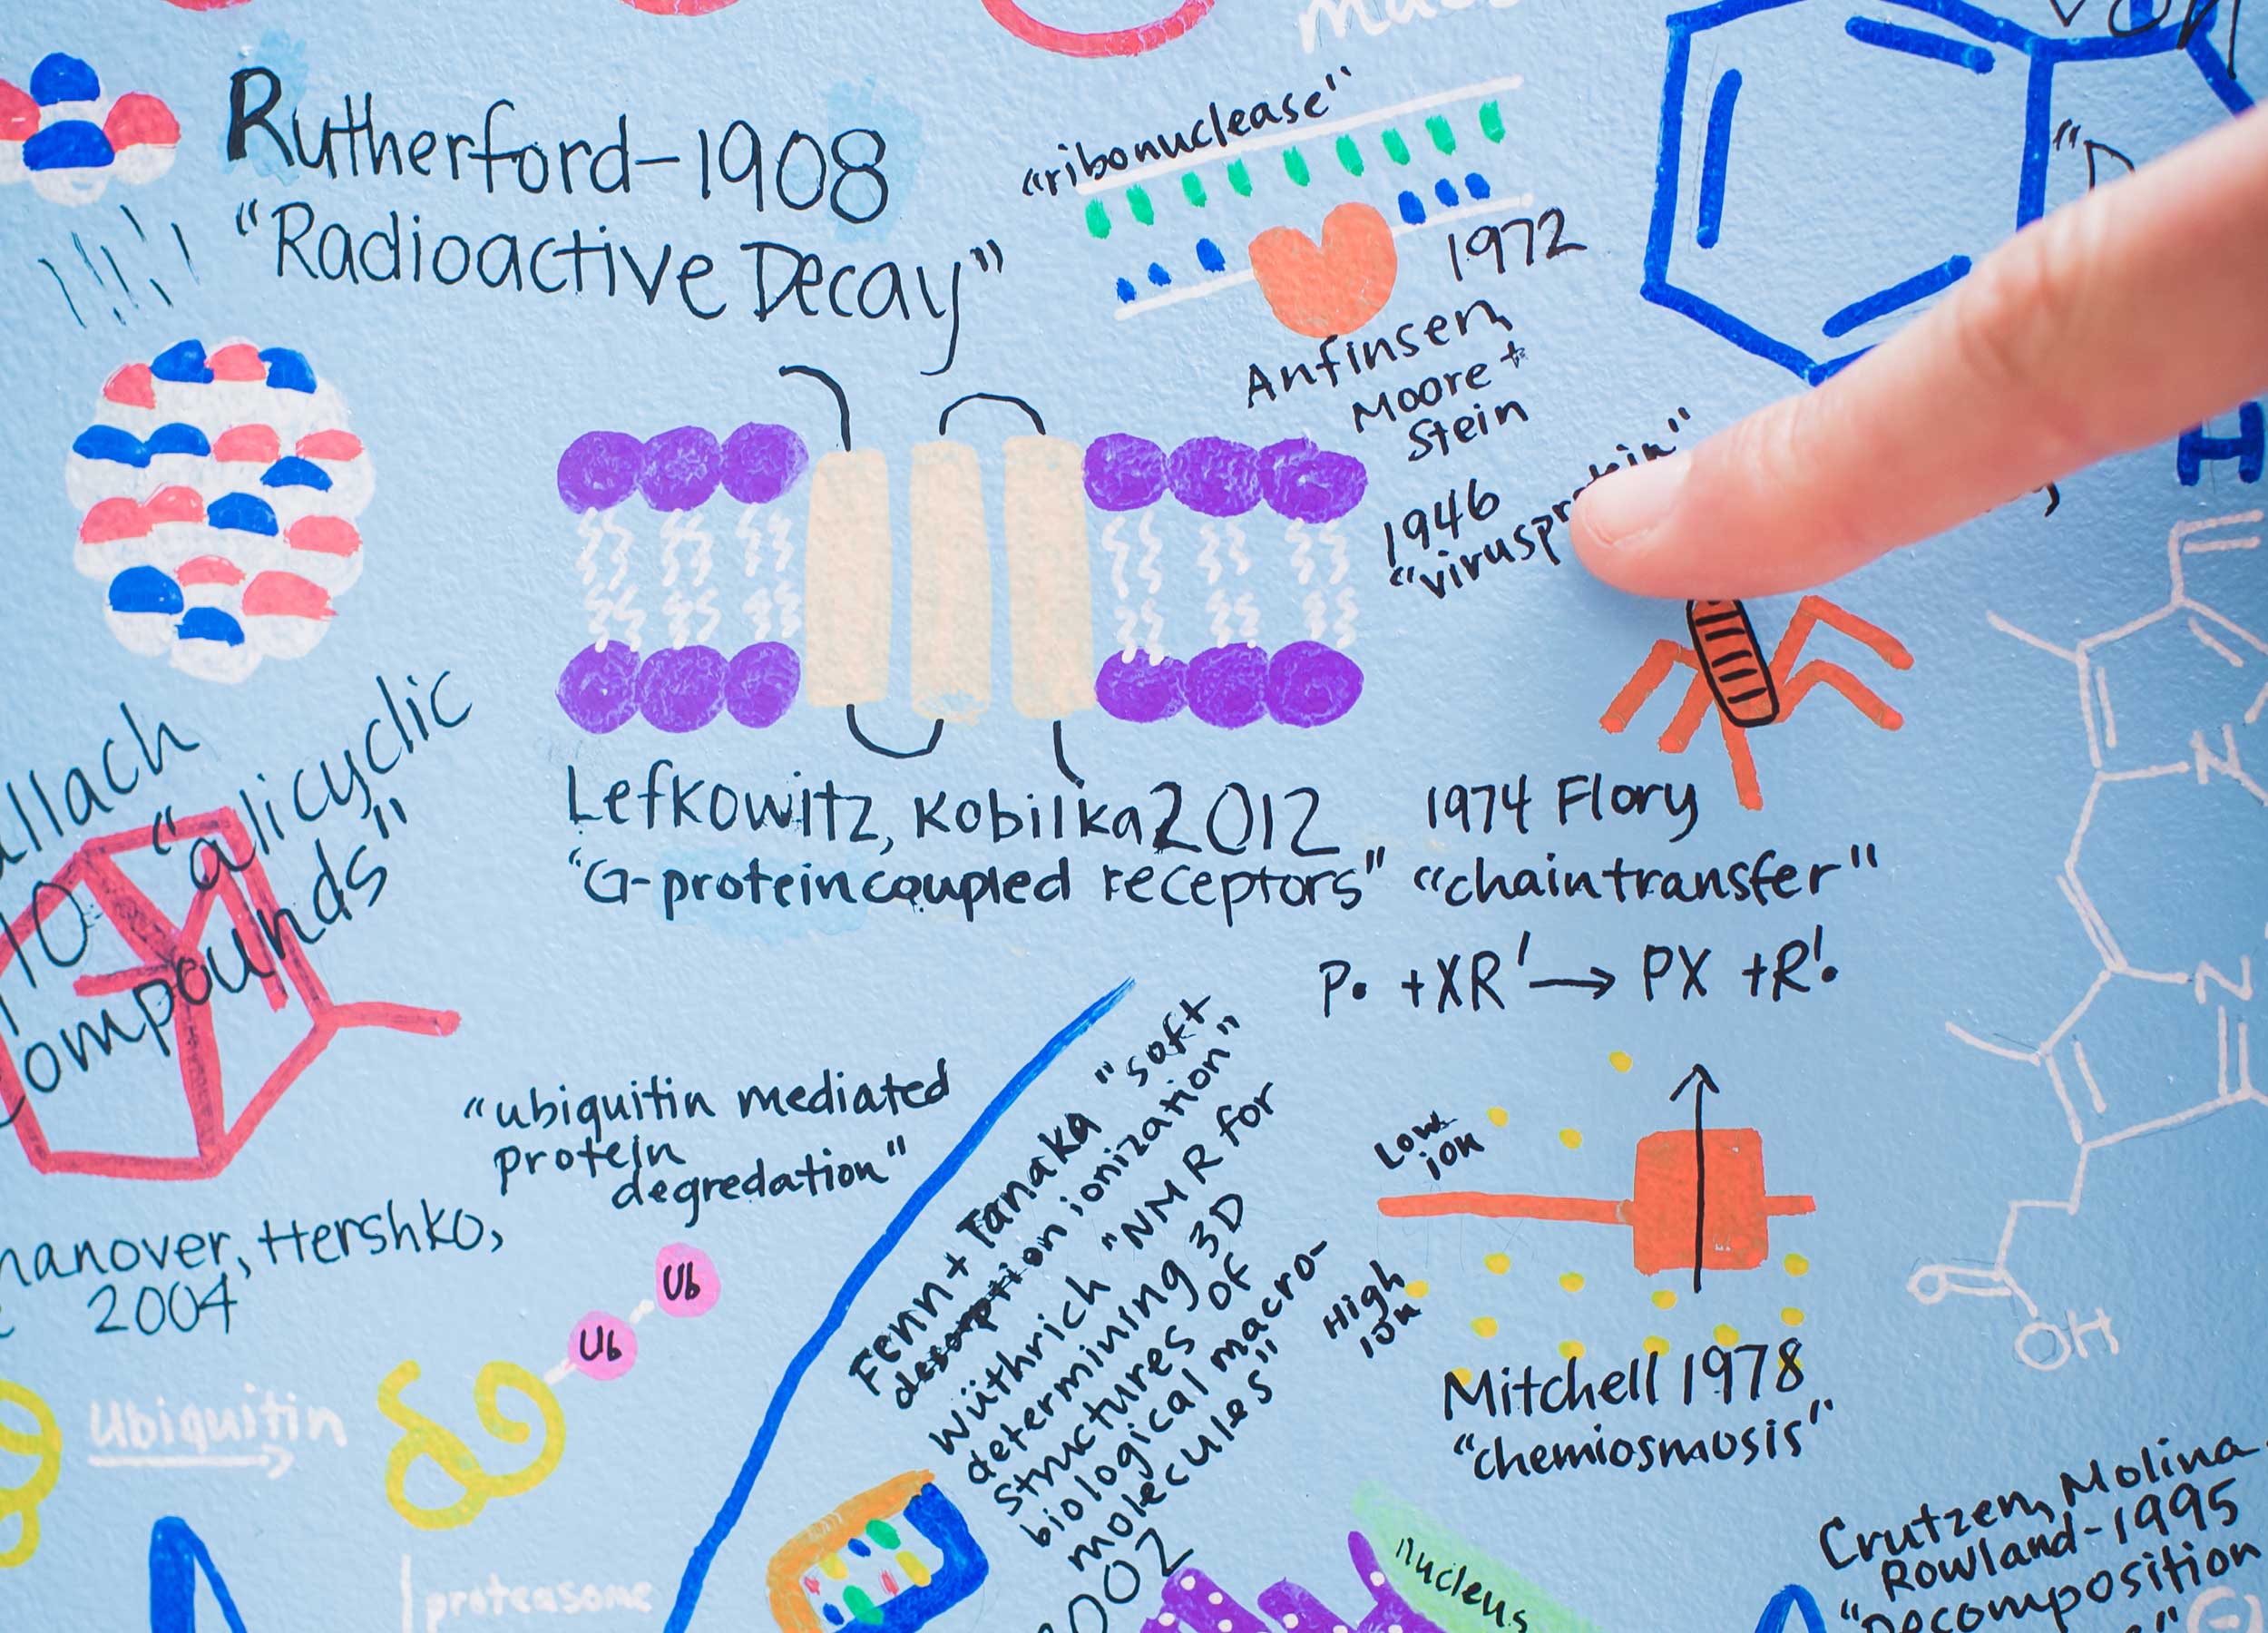 Rutherford-1908
"Radioactive Decay"
"ribonuclease"
1972
Anfinsen,
Moore +
Stein
1946
Lefkowitz, Kobilka 2012
"G-protein coupled receptors"
1974 Flory
"chain transfer"
P• + XR' → PX + R'•
"alicyclic
"ubiquitin mediated
protein
degredation"
Hershko,
2004
Ub
Ub
Ubiquitin
proteasome
Fenn + Tanaka "soft
desorption ionization"
Wüthrich "NMR for
determining 3D
structures of
biological macro-
molecules"
Low
ion
High
ion
Mitchell 1978
"chemiosmosis"
nucleus
Crutzen, Molina
Rowland-1995
"Decomposition
N
N
O
OH
H